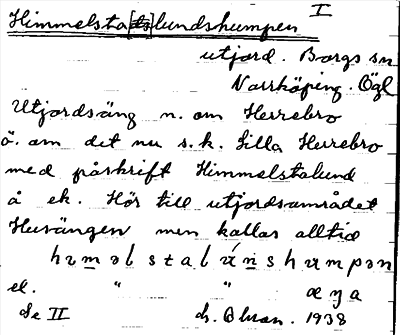 Himmelsta[ds]lundshumpen I
utjord. Borgs sn
Norrköping. Ögl
Utjordsäng n. om Herrebro
ö. om det nu s.k. Lilla Herrebro
med påskrift Himmelstalund
å ek. Hör till utjordsområdet
Husängen men kallas alltid
hɪməlstalúnshumpən
el. " " æŋa
Se II 1938